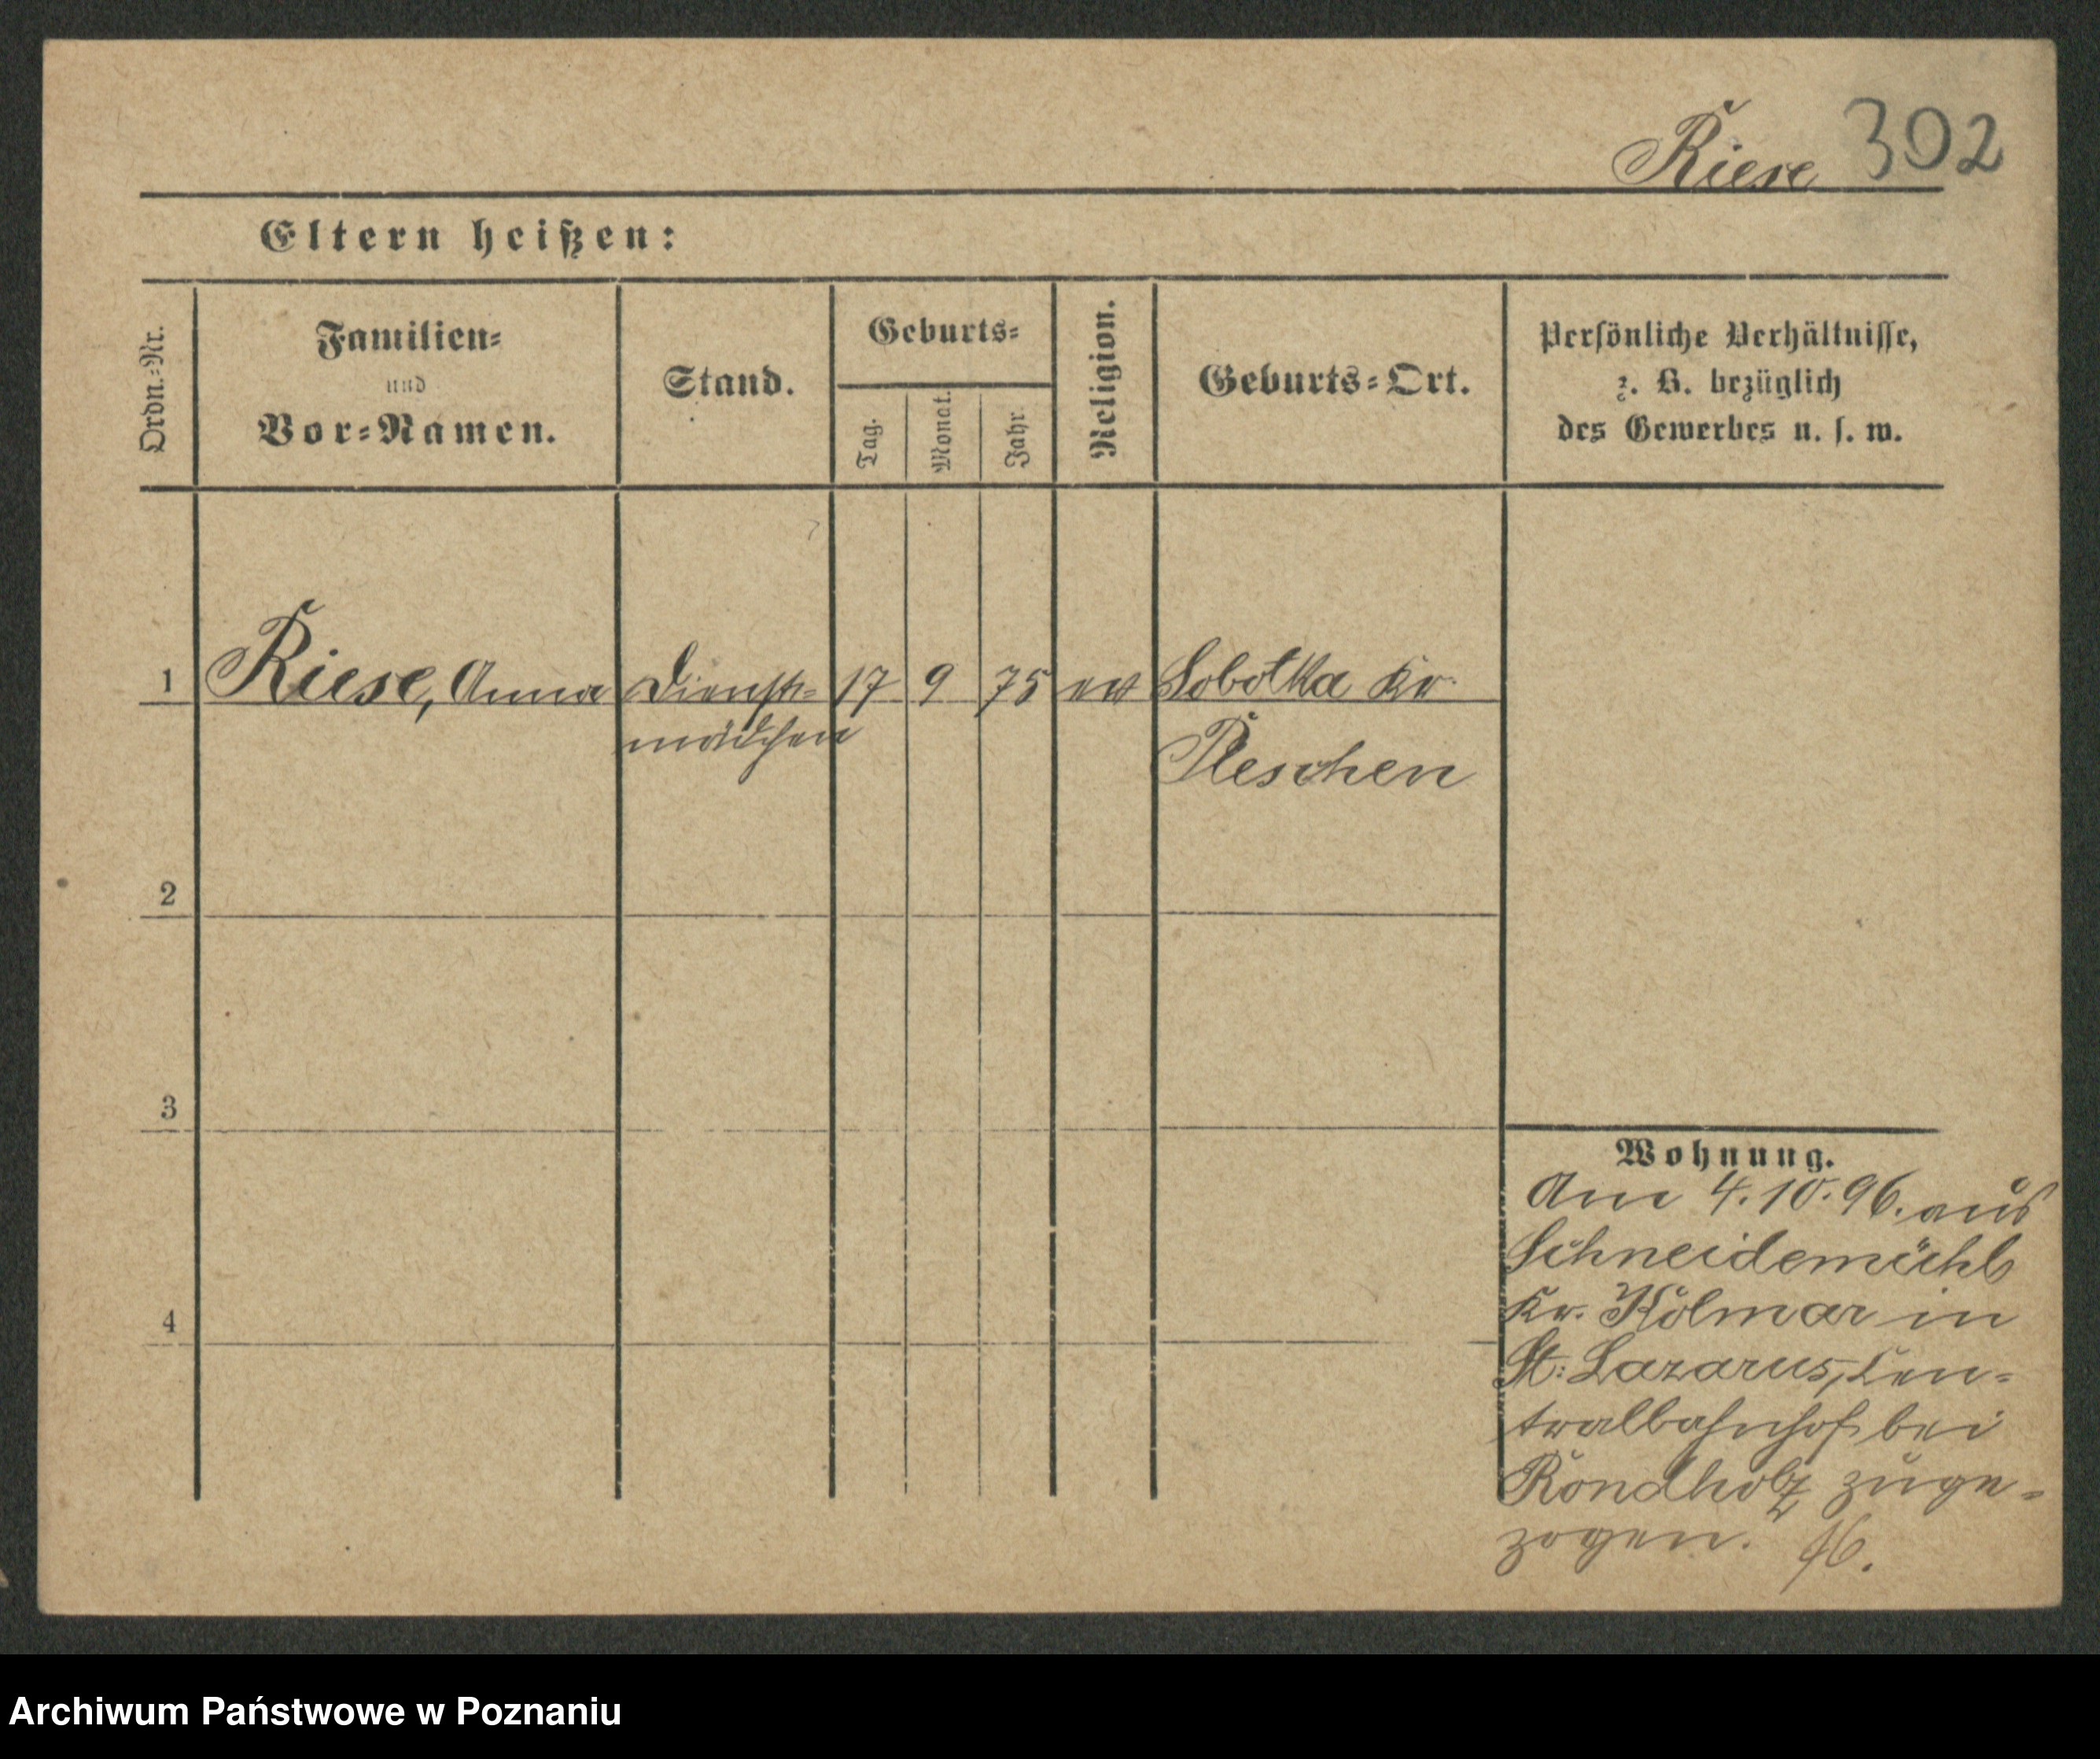 Riese 302
Eltern heißen:
Ordn.-Nr.
Familien-
und
Vor-Namen.
Stand.
Geburts-
Tag.
Monat.
Jahr.
Religion.
Geburts-Ort.
Persönliche Verhältnisse,
z. B. bezüglich
des Gewerbes u. s. w.
1 Riese, Anna Dienst- 17 9 75 ev Sobotka Kr.
mädchen Pleschen
2
3
4
Wohnung.
Am 4.10.96. aus
Schneidemühl
Kr. Kolmar in
St. Lazarus, Cen-
tralbahnhof bei
Rondholz zuge-
zogen.
Archiwum Państwowe w Poznaniu